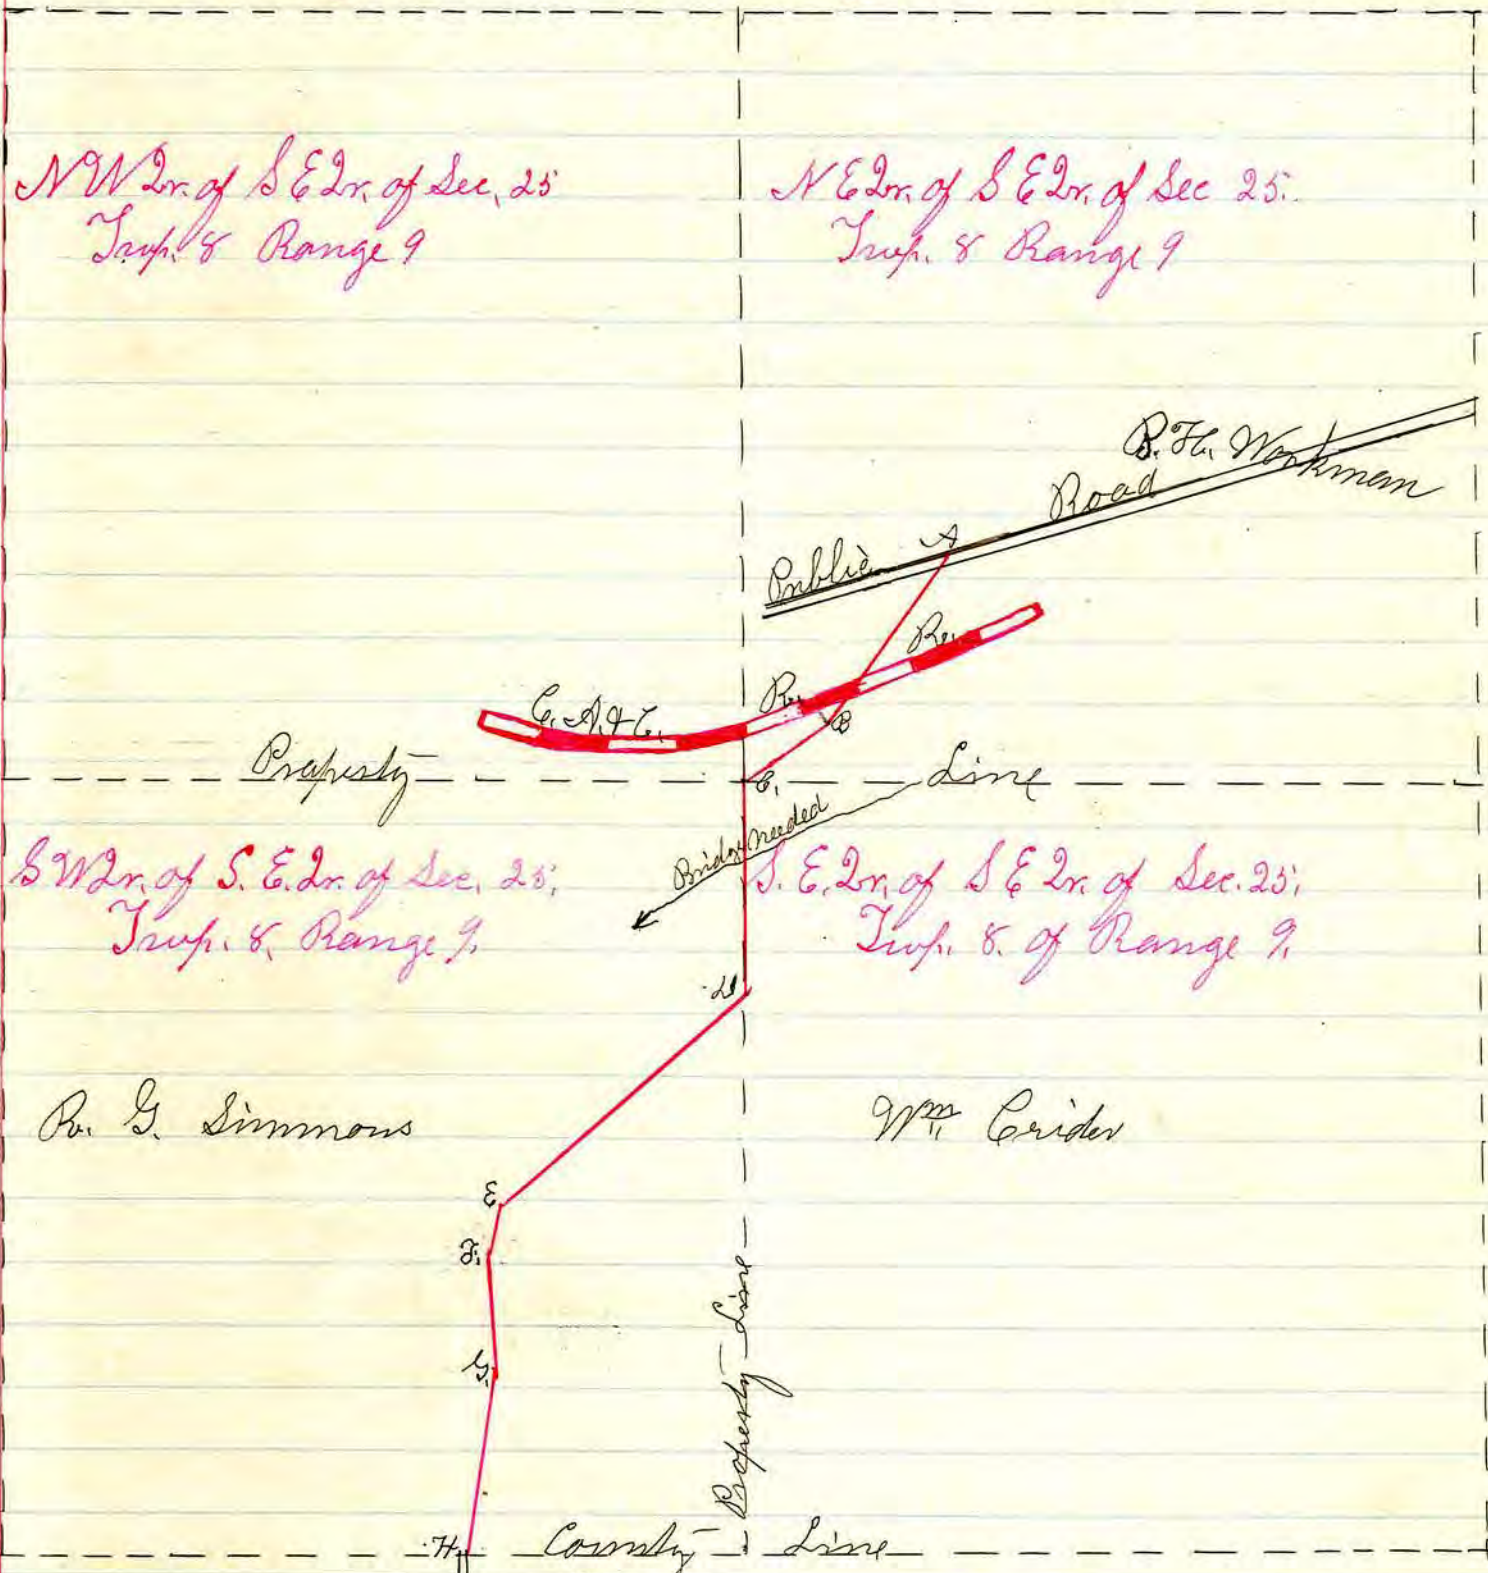 N W Qr. of S E Qr. of Sec. 25
Twp. 8 Range 9
N E Qr. of S E Qr. of Sec 25.
Twp. 8 Range 9
B. H. Workman
Public Road
A
R.
R.
C. A. & C.
B
Property Line
C.
Bridge Needed
S W Qr. of S. E. Qr. of Sec. 25,
Twp. 8, Range 9,
S. E. Qr. of S E Qr. of Sec. 25,
Twp. 8. of Range 9,
D
R. G. Simmons
Wm. Crider
E
F.
G.
Property Line
H
County Line